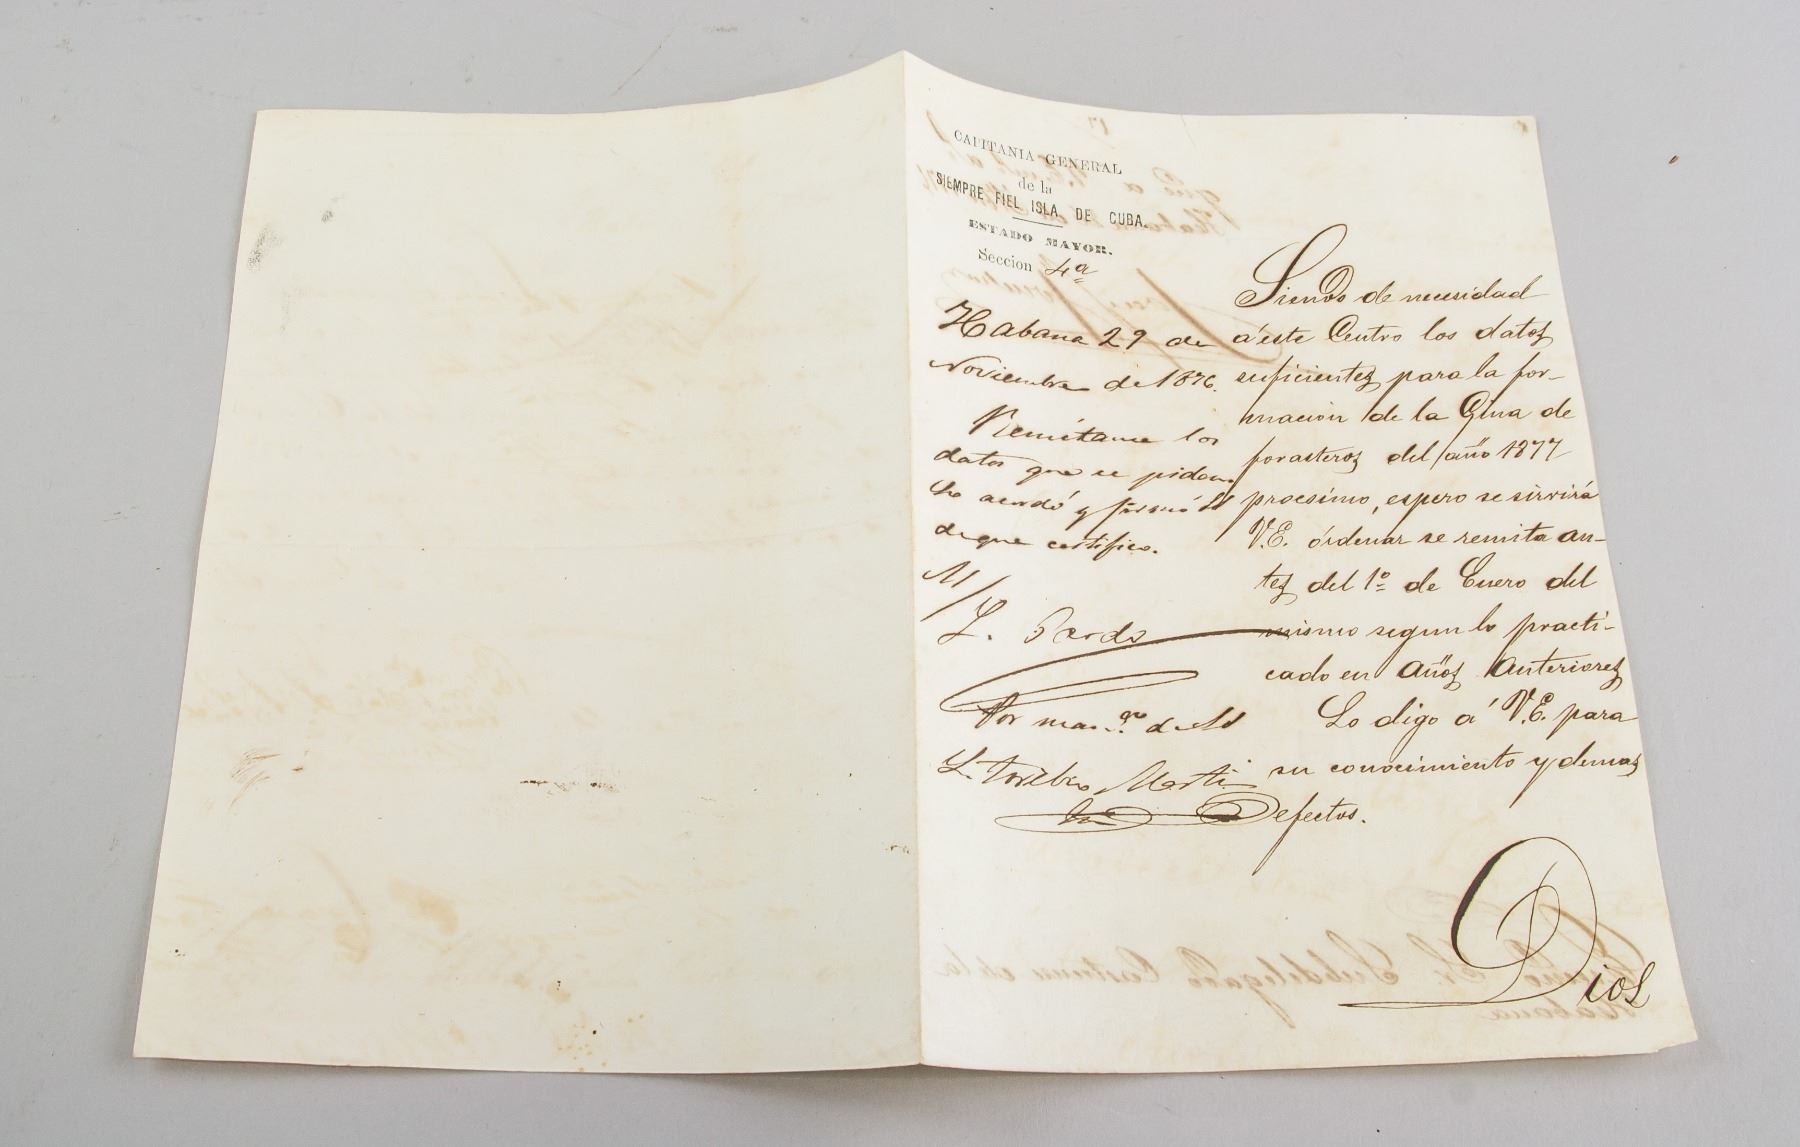 CAPITANIA GENERAL
de la
SIEMPRE FIEL ISLA DE CUBA.
ESTADO MAYOR.
Seccion 4ª
Habana 29 de
Noviembre de 1876.
Remítame los
datos que se pidan.
Lo acordó y firmó
de que certifico.
M/
Por man.
Siendo de necesidad
á éste Centro los datos
suficientes para la for-
macion de la Guia de
forasteros del año 1877
procsimo, espero se sirvirá
V.E. órdenar se remita an-
tes del 1º de Enero del
mismo segun lo practi-
cado en años anteriores
Lo digo á V.E. para
su conocimiento y demas
efectos.
Dios